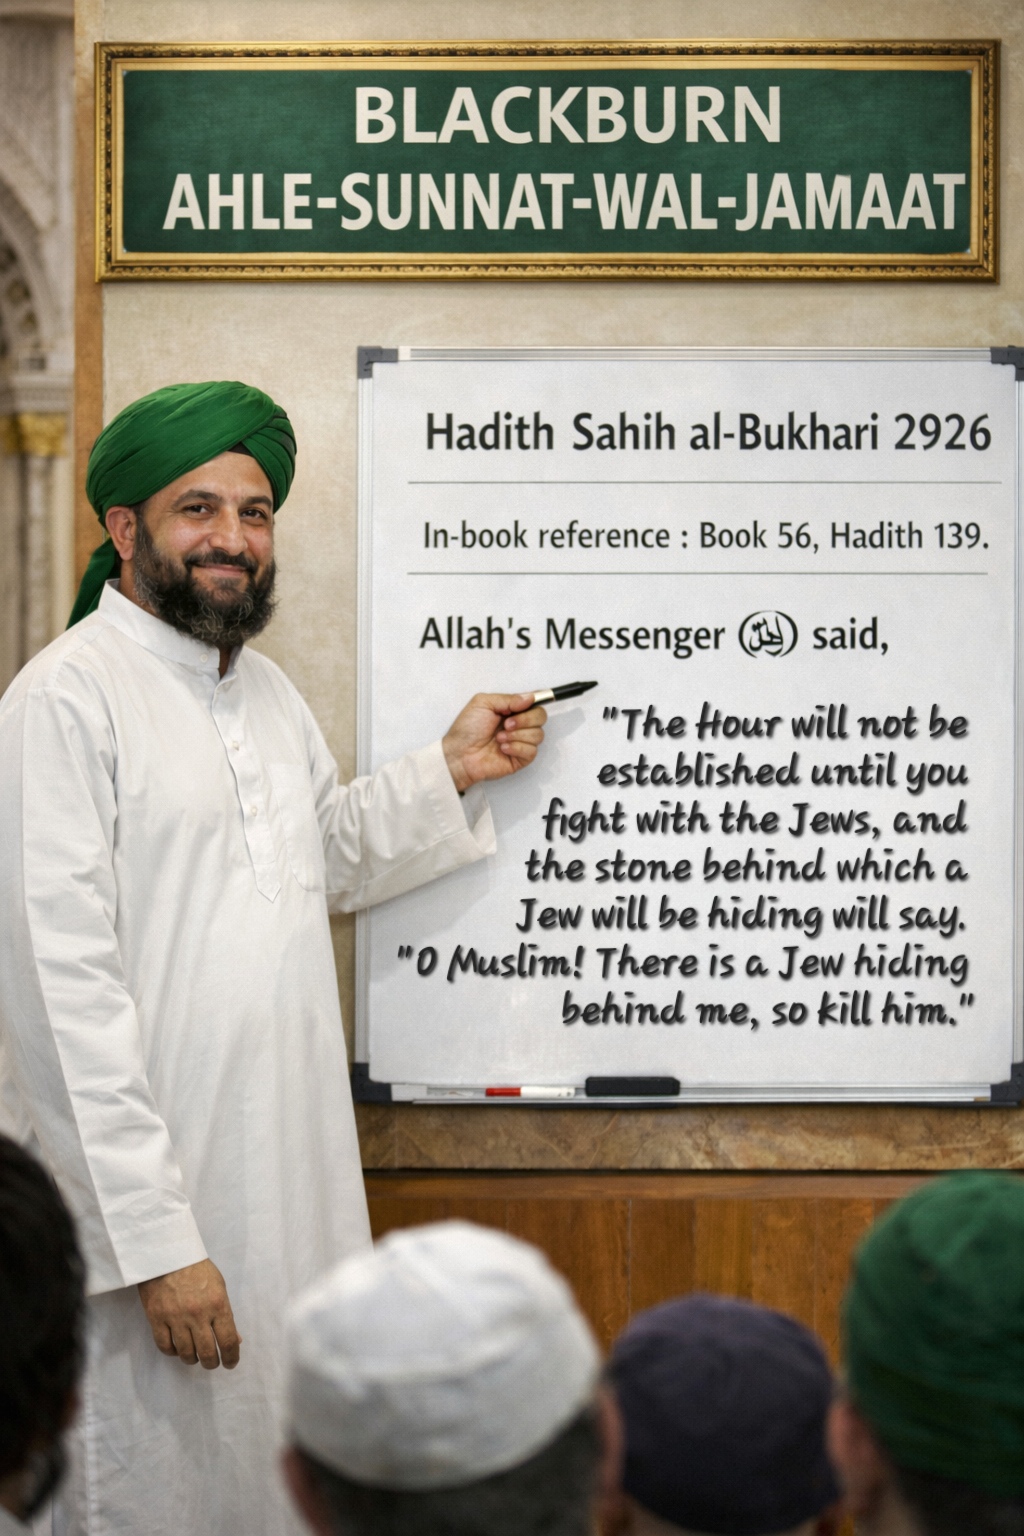 BLACKBURN
AHLE-SUNNAT-WAL-JAMAAT
Hadith Sahih al-Bukhari 2926
In-book reference : Book 56, Hadith 139.
Allah's Messenger said,
"The Hour will not be
established until you
fight with the Jews, and
the stone behind which a
Jew will be hiding will say.
"O Muslim! There is a Jew hiding
behind me, so kill him."